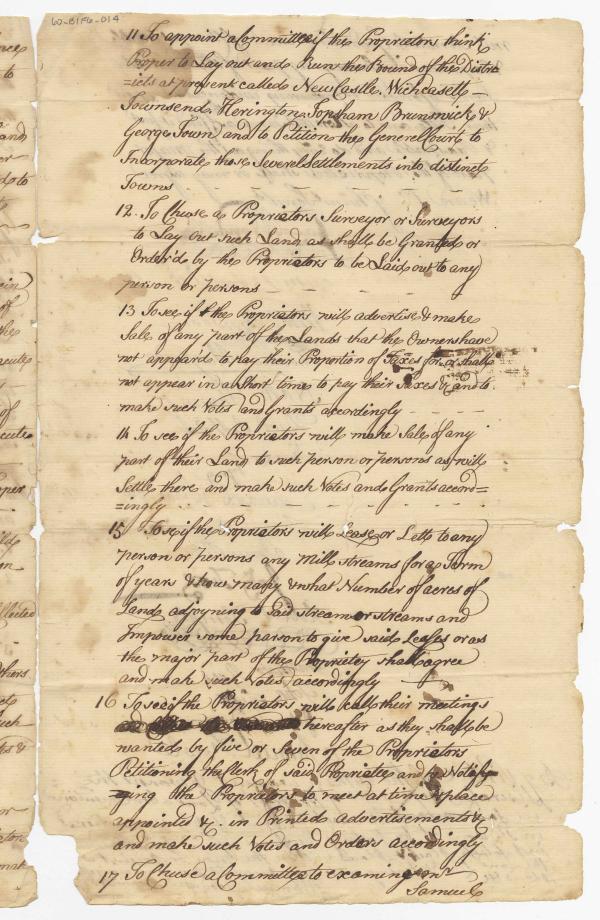 60-B1F6-014
11 To appoint a Committee if the Proprietors think
Proper to Lay out and Run the Bound of the Distri
=icts at present called New Castle, Wichcasett
Townsend, Herington, Topsham Brunswick &
George Town and to Petition the General Court to
Incorporate those Several Settlements into distinct
Towns
12. To Chuse a Proprietors Surveyor or Surveyors
to Lay out such Land as shall be Granted or
Order'd by the Proprietors to be Laid out to any
person or persons
13 To see if the Proprietors will advertise & make
Sale of any part of the Lands that the Owners have
not appeard to pay their Proportion of Taxes for or shall
not appear in a Short time to pay their Taxes & and to
make such Votes and Grants accordingly
14 To see if the Proprietors will make Sale of any
part of their Land to such person or persons as will
Settle there and make such Votes and Grants accord=
=ingly
15 To see if the Propriators will Lease or Lett to any
person or persons any Mill streams for a Term
of years & how many & what Number of acres of
Land adjoyning to said stream or streams and
Impower some person to give said Leases or as
the major part of the Propriety shall agree
and make such Votes accordingly
16 To see if the Propriators will call their meetings
hereafter as they shall be
wanted by five or Seven of the Propriators
Petitioning the Clerk of said Propriaty and Notify
=ing the Propriators to meet at time & place
appointed &c. in Printed advertisements &
and make such Votes and Orders accordingly
17 To Chuse a Committee to examine mr
Samuel